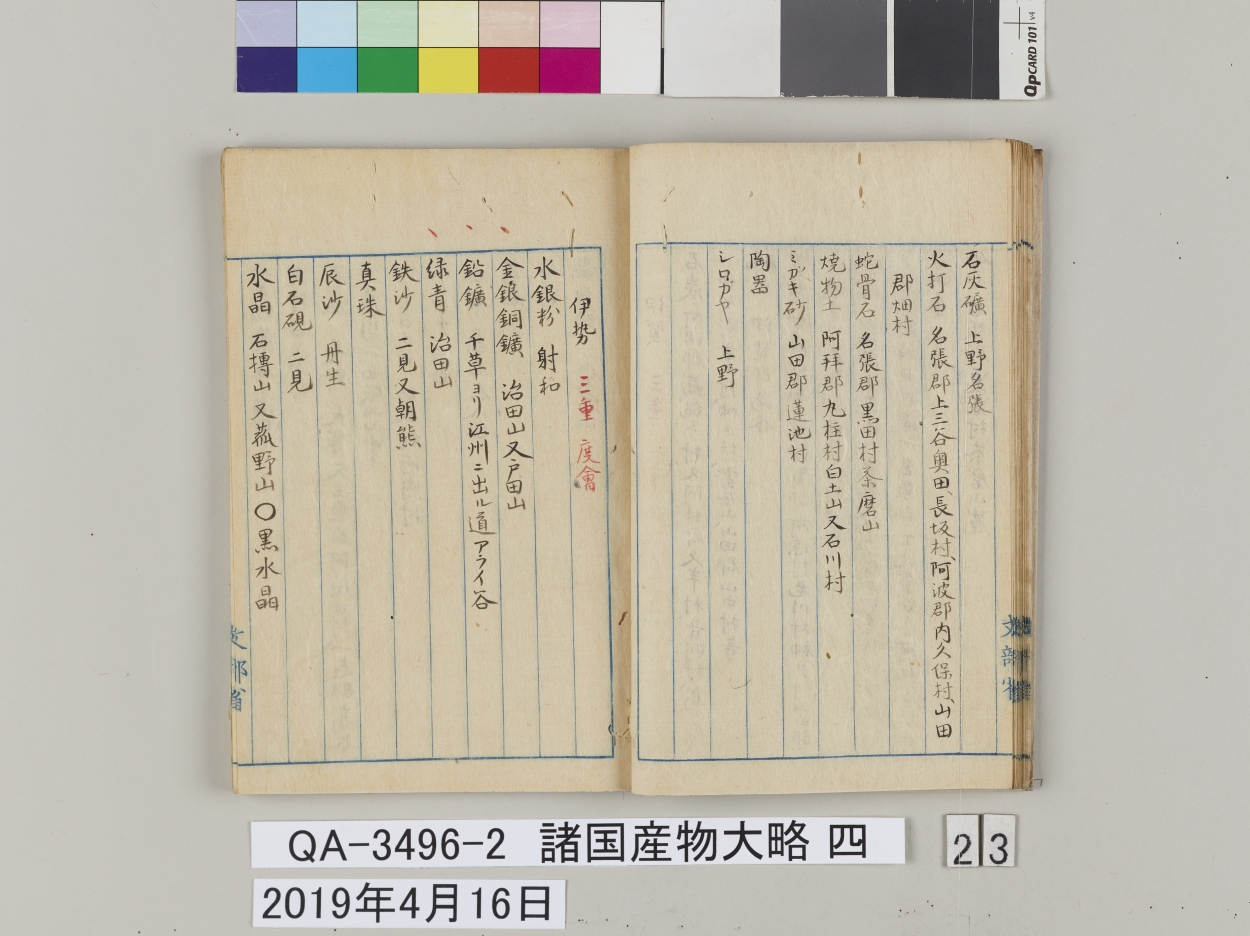 石灰礦 上野名張
火打石 名張郡上三谷奥田、長坂村、阿波郡内久保村、山田
郡畑村
蛇骨石 名張郡黒田村茶磨山
焼物土 阿拝郡丸柱村白土山又石川村
ミガキ砂 山田郡蓮池村
陶器
シロガヤ 上野
文部省
伊勢 三重 度會
水銀粉 射和
金銀銅鑛 治田山又戸田山
鉛鑛 千草ヨリ江州ニ出ル道アライ谷
緑青 治田山
鉄沙 二見又朝熊
真珠
辰沙 丹生
白石硯 二見
水晶 石摶山又菰野山〇黒水晶
文部省
QA-3496-2 諸国産物大略 四
23
2019年4月16日
QpCARD 101 v4